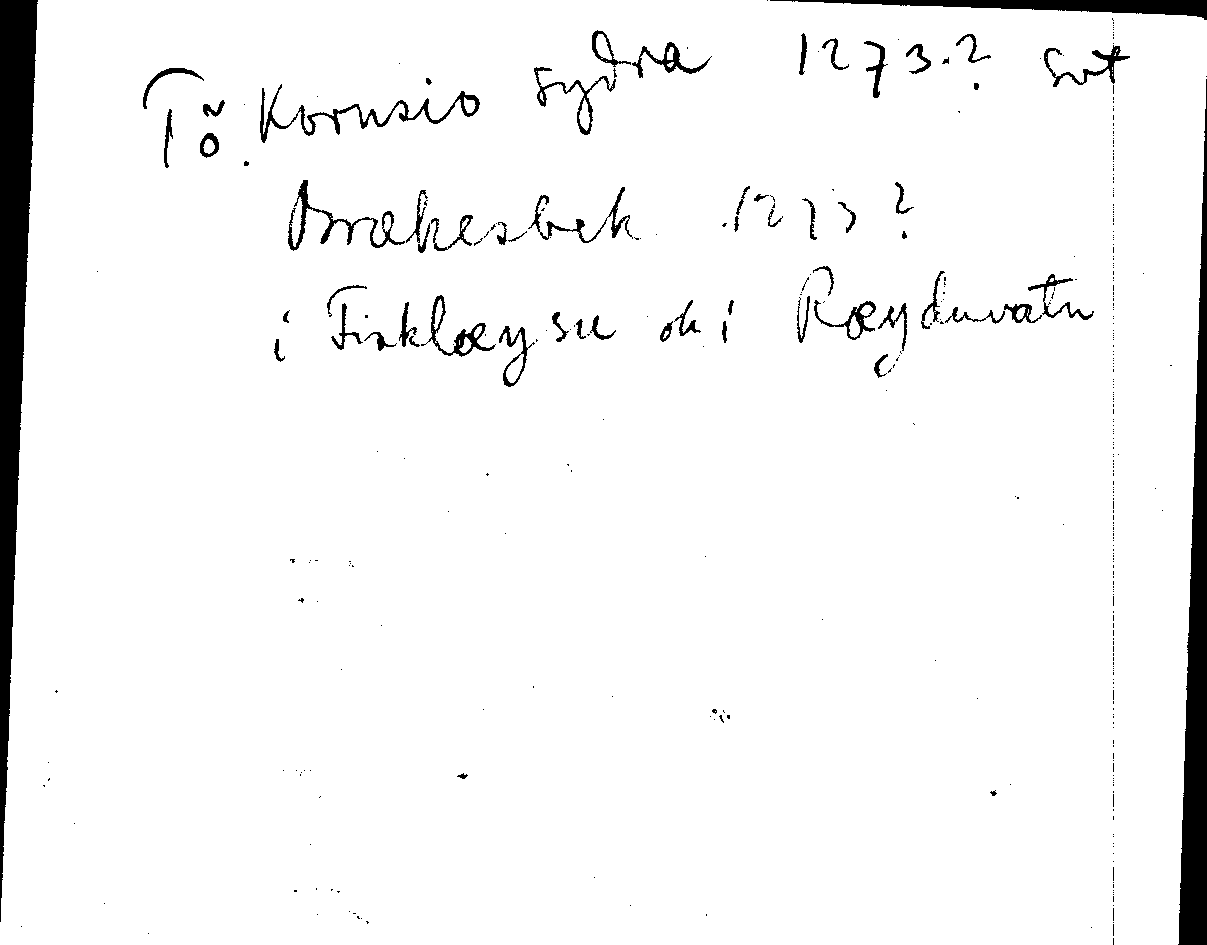 Tõ. Kornsio sydra 1273.? Svt
Brækesbek .1273?
i Fiskløysu ok i Røyduvatn